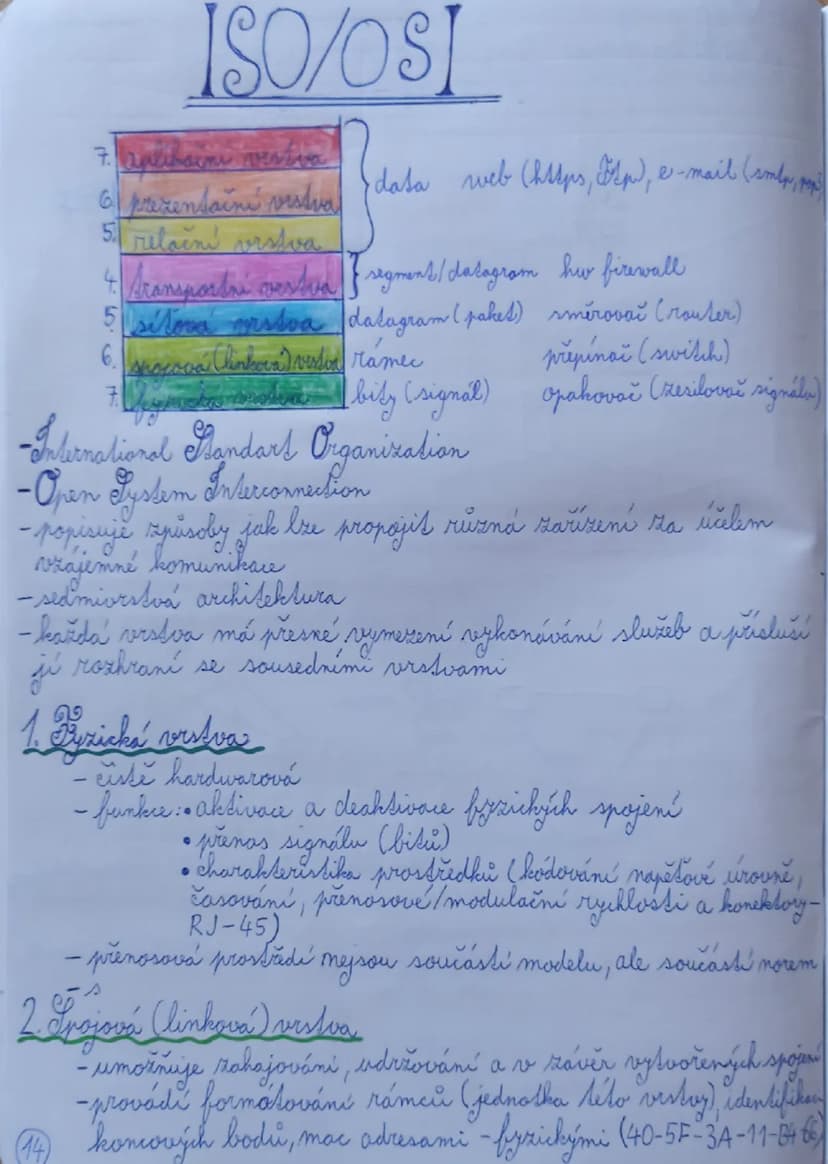 ISO/OSI
7. aplikační vrstva
6. prezentační vrstva
5. relační vrstva
data web (https, ftp), e-mail (smtp, pop3
4. transportní vrstva segment/datagram hw firewall
5. síťová vrstva datagram (paket) směrovač (router)
6. spojová (linková) vrstva rámec přepínač (switch)
7. fyzická vrstva bity (signál) opakovač (zesilovač signálu)
-International Standart Organization
-Open System Interconnection
-popisuje způsoby jak lze propojit různá zařízení za účelem
vzájemné komunikace
-sedmivrstvá architektura
-každá vrstva má přesné vymezení vykonávání služeb a přísluší
jí rozhraní se sousedními vrstvami
1. Fyzická vrstva
- čistě hardwarová
- funkce: • aktivace a deaktivace fyzických spojení
• přenos signálu (bitů)
• charakteristika prostředků (kódování napěťové úrovně,
časování, přenosové/modulační rychlosti a konektory-
RJ-45)
- přenosová prostředí nejsou součástí modelu, ale součástí norem
- s
2. Spojová (linková) vrstva
-umožňuje zahajování, udržování a v závěr vytvořených spojení
-provádí formátování rámců (jednotka této vrstvy), identifikac
koncových bodů, mac adresami - fyzickými (40-5F-3A-11-B4
14